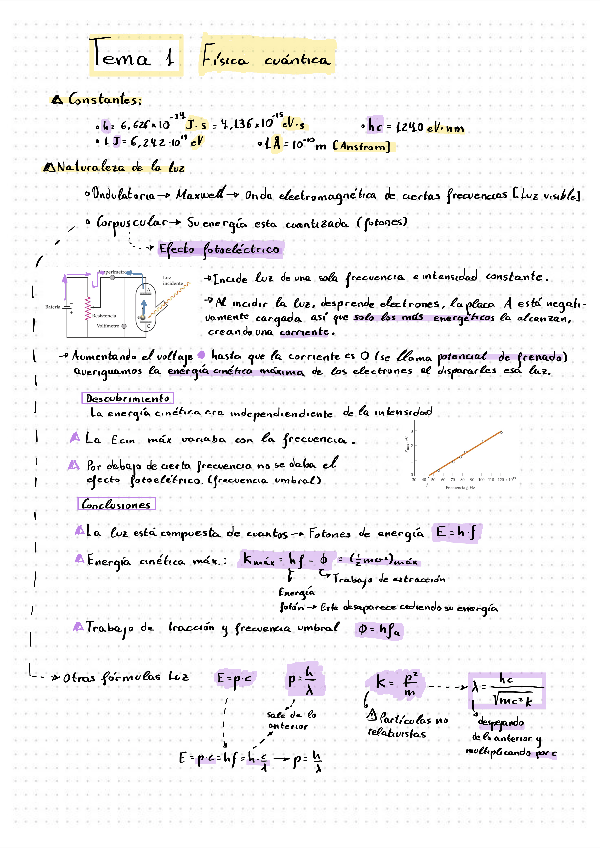 Tema 1 Física cuántica
Constantes:
h = 6,626×10⁻³⁴ J·s = 4,136×10⁻¹⁵ eV·s
hc = 1240 eV·nm
1 J = 6,242·10¹⁸ eV
1 Å = 10⁻¹⁰ m [Anstrom]
Naturaleza de la luz
Ondulatoria → Maxwell → Onda electromagnética de ciertas frecuencias [Luz visible]
Corpuscular → Su energía esta cuantizada (fotones)
Efecto fotoeléctrico
Amperímetro
Luz
incidente
Batería
Resistencia
Voltímetro
A
C
→ Incide luz de una sola frecuencia e intensidad constante.
→ Al incidir la luz, desprende electrones, la placa A está negati-
vamente cargada así que solo los más energéticos la alcanzan,
creando una corriente.
→ Aumentando el voltaje hasta que la corriente es 0 (se llama potencial de frenado)
averiguamos la energía cinética máxima de los electrones al dispararles esa luz.
Descubrimiento
La energía cinética era independiendiente de la intensidad
La Ecin máx variaba con la frecuencia.
Por debajo de cierta frecuencia no se daba el
efecto fotoeléctrico. (frecuencia umbral)
30 40 50 60 70 80 90 100 110 120
Frecuencia, Hz
Conclusiones
La luz está compuesta de cuantos → Fotones de energía E = h·f
Energía cinética máx.: Kmáx = hf - ϕ = (½mv²)máx
Trabajo de extracción
Energía
fotón → Este desaparece cediendo su energía
Trabajo de tracción y frecuencia umbral ϕ = hf₀
→ Otras fórmulas Luz E = p·c p = h/λ K = p²/m → λ = hc/√mc²K
sale de lo
anterior
Partículas no
relatavistas
despejando
de lo anterior y
multiplicando por c
E = p·c = hf = h·c/λ → p = h/λ